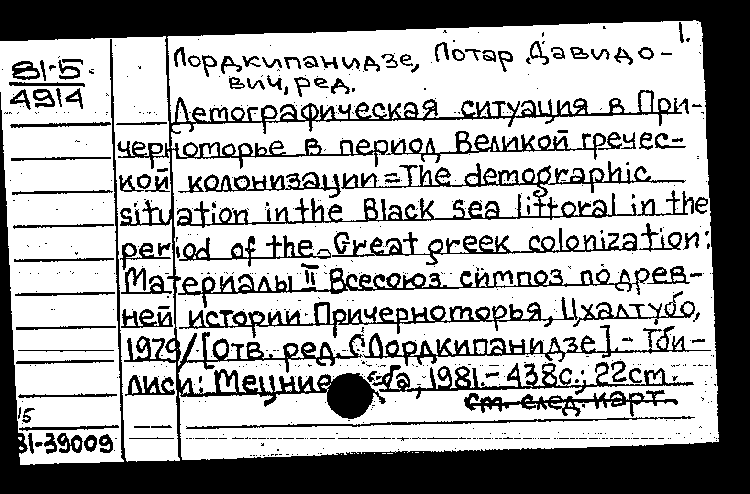 1.
81-5.
4914
Лордкипанидзе, Лотар Давидо-
вич, ред.
Демографическая ситуация в При-
черноморье в период Великой гречес-
кой колонизации = The demographic
situation in the Black sea littoral in the
period of the Great greek colonization:
Материалы II Всесоюз. симпоз. по древ-
ней истории Причерноморья, Цхалтубо,
1979/[Отв. ред. О Лордкипанидзе]. - Тби-
лиси: Мецние ба, 1981. - 438с.; 22см.
см. след. карт.
15
81-39009